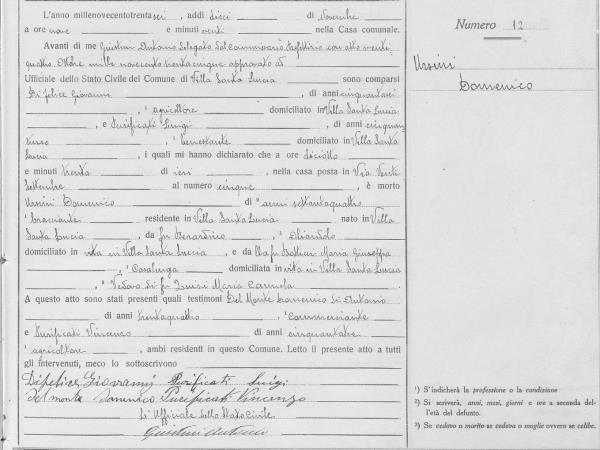 L'anno millenovecentotrentasei , addì dieci di Novembre
a ore nove e minuti venti nella Casa comunale.
Avanti di me Giustini Antonio Delegato dal Commissario Prefettizio con atto venti
quattro Ottobre mille novecento trenta cinque approvato
Ufficiale dello Stato Civile del Comune di Villa Santa Lucia sono comparsi
Di Felice Giovanni , di anni cinquantasei
, agricoltore domiciliato in Villa Santa Lucia
, e Purificati Luigi , di anni cinquan
, benestante domiciliato in Villa Santa
Lucia , i quali mi hanno dichiarato che a ore diciotto
e minuti trenta di ieri , nella casa posta in Via Venti
Settembre al numero cinque , è morto
Ursini Domenico di anni settantaquattro
bracciante residente in Villa Santa Lucia nato in Villa
Santa Lucia , da fu Berardino ,
domiciliato in vita in Villa Santa Lucia , e da Maria Giuseppa
, Casalinga domiciliata in vita in Villa Santa Lucia
, Vedovo di fu Maria Carmela
A questo atto sono stati presenti quali testimoni Del Monte Domenico di Antonio
di anni trentaquattro , Commerciante
e Purificati Vincenzo di anni cinquantatre
agricoltore , ambi residenti in questo Comune. Letto il presente atto a tutti
gli intervenuti, meco lo sottoscrivono
Di felice Giovanni Purificati Luigi
Del monte Domenico Purificati Vincenzo
L'Ufficiale dello Stato Civile
Giustini Antonio
Numero 12
Ursini
Domenico
¹) S'indicherà la professione o la condizione
²) Si scriverà, anni, mesi, giorni e ore a seconda del-
l'età del defunto.
³) Se vedovo o marito se vedova o moglie ovvero se celibe.